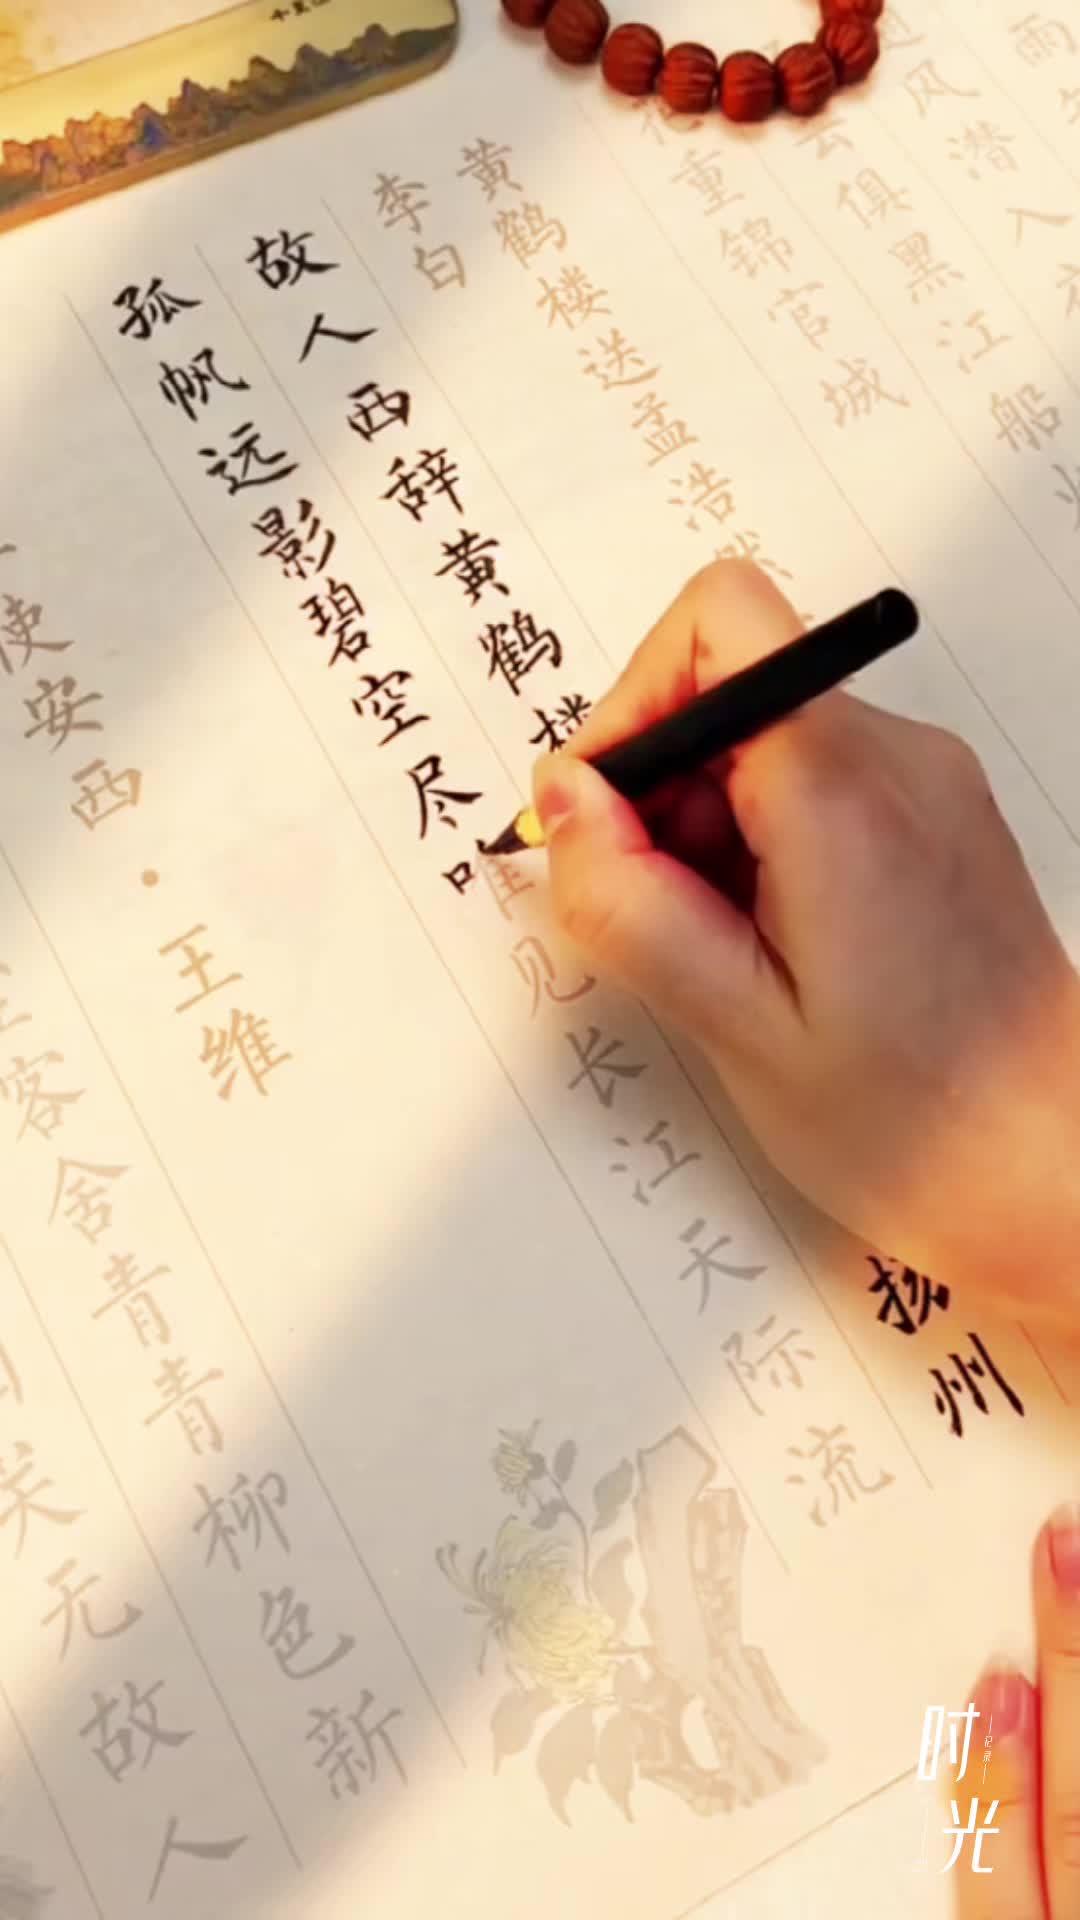 雨
风潜入
云俱黑江船火
花重锦官城
黄鹤楼送孟浩然
李白
故人西辞黄鹤楼
扬州
孤帆远影碧空尽唯见长江天际流
使安西·王维
客舍青青柳色新
关无故人
时光
记录